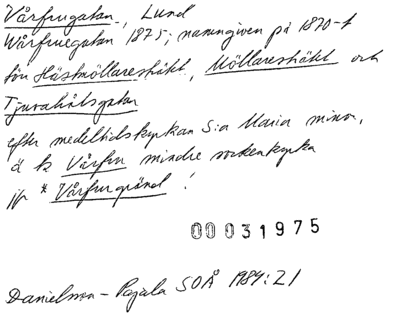 Vårfrugatan, Lund
Wårfruegatan 1875; namngiven på 1870-t
för Hästmöllaresträkt, Möllaresträkt och
Tjurahålsgatan
efter medeltidskyrkan S:a Maria minor,
d ä Vårfru mindre sockenkyrka
jfr * Vårfrugränd !
00031975
Danielson - Pajala SOÅ 1984:21